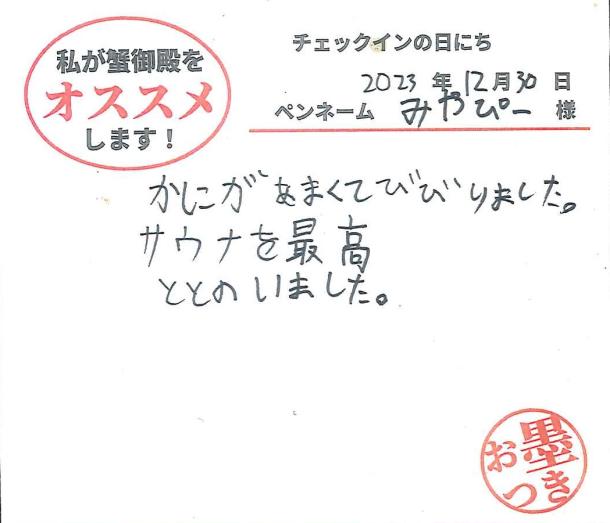 私が蟹御殿を
オススメ
します！
チェックインの日にち
2023 年 12月 30 日
ペンネーム みやぴー 様
かにがあまくてびびりました。
サウナを最高
ととのいました。
お墨
つき